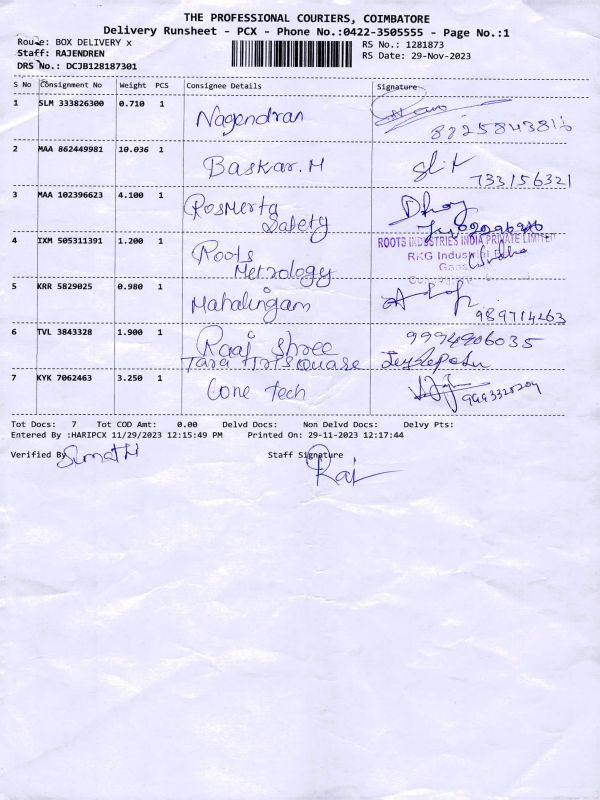 THE PROFESSIONAL COURIERS, COIMBATORE
Delivery Runsheet - PCX - Phone No.:0422-3505555 - Page No.:1
Route: BOX DELIVERY x
RS No.: 1281873
Staff: RAJENDREN
RS Date: 29-Nov-2023
DRS No.: DCJB128187301
S No Consignment No Weight PCS Consignee Details Signature
1 SLM 333826300 0.710 1 Nagendran
2 MAA 862449981 10.036 1 Baskar.M 733156321
3 MAA 102396623 4.100 1 Rosmerta
Safety
4 IXM 505311391 1.200 1 Roots ROOTS INDUSTRIES INDIA PRIVATE LIMITED
Metrology RKG Industrial
5 KRR 5829025 0.980 1 Mahalingam
989714263
6 TVL 3843328 1.900 1 Raaj Shree 9994906035
Tara Artsquare
7 KYK 7062463 3.250 1 Cone tech
Tot Docs: 7 Tot COD Amt: 0.00 Delvd Docs: Non Delvd Docs: Delvy Pts:
Entered By :HARIPCX 11/29/2023 12:15:49 PM Printed On: 29-11-2023 12:17:44
Verified By Staff Signature
Raj